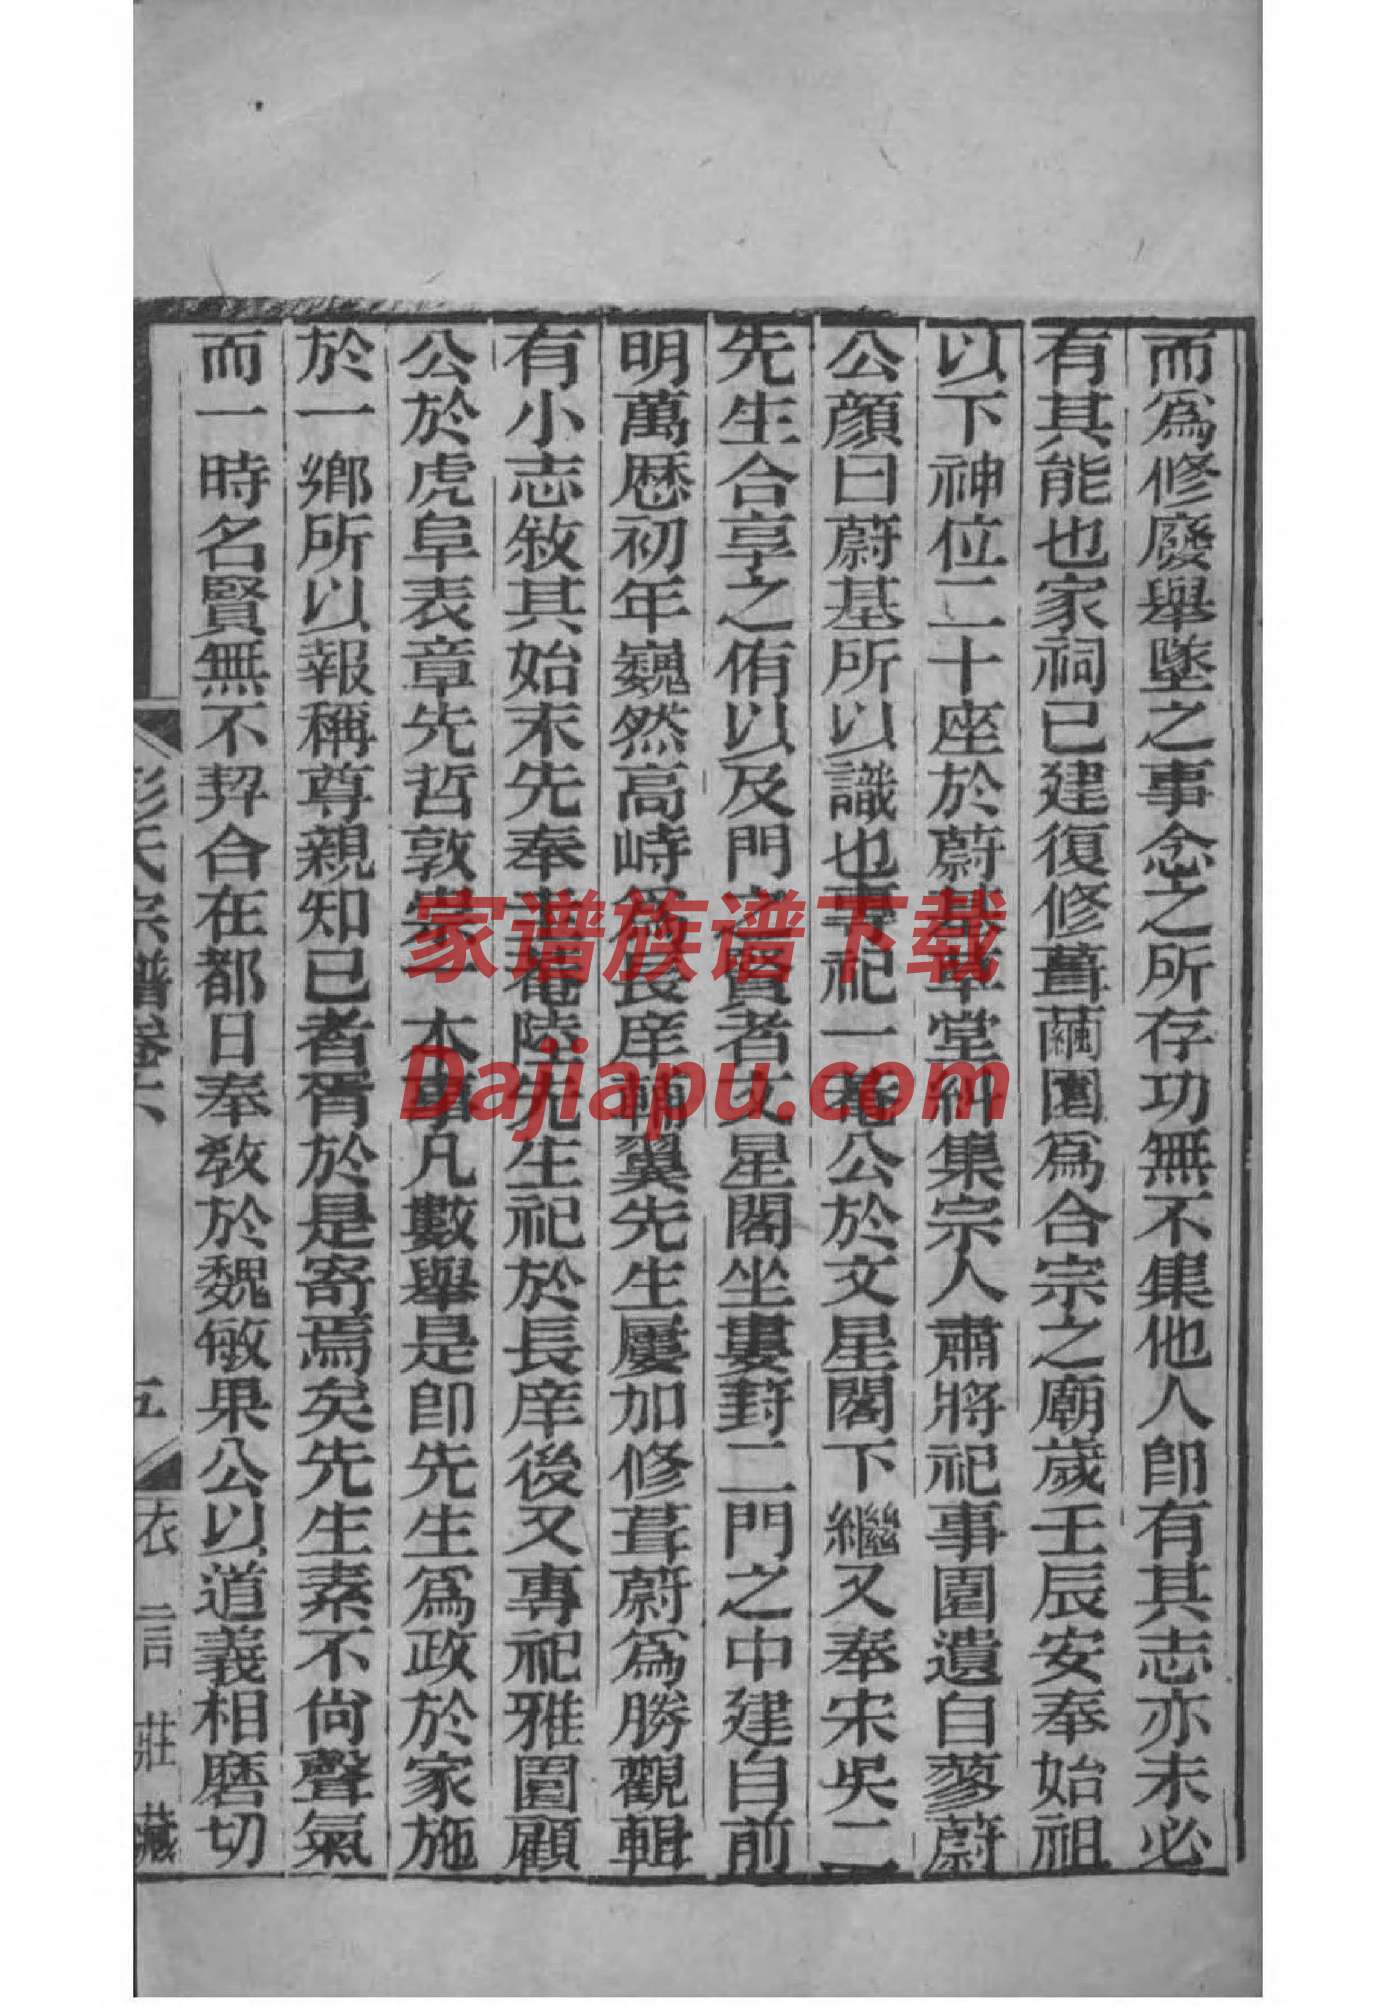 而爲修廢舉墜之事念之所存功無不集他人卽有其志亦未必
有其能也家祠已建復修葺繭園爲合宗之廟歲壬辰安奉始祖
以下神位二十座於蔚草堂糾集宗人肅將祀事園遺自蓼蔚
公顔曰蔚基所以識也專祀一菴公於文星閣下繼又奉宋吳二
先生合享之侑以及門之賢者文星閣坐婁葑二門之中建自前
明萬厯初年巍然高峙爲長庠輔翼先生屢加修葺蔚爲勝觀輯
有小志敘其始末先奉菴陸先生祀於長庠後又專祀雅園顧
公於虎阜表章先哲敦本事凡數舉是卽先生爲政於家施
於一鄉所以報稱尊親知己者胥於是寄焉矣先生素不尙聲氣
而一時名賢無不契合在都日奉敎於魏敏果公以道義相磨切
彭氏宗譜卷六
五
衣言莊藏
家谱族谱下载
Dajiapu.com